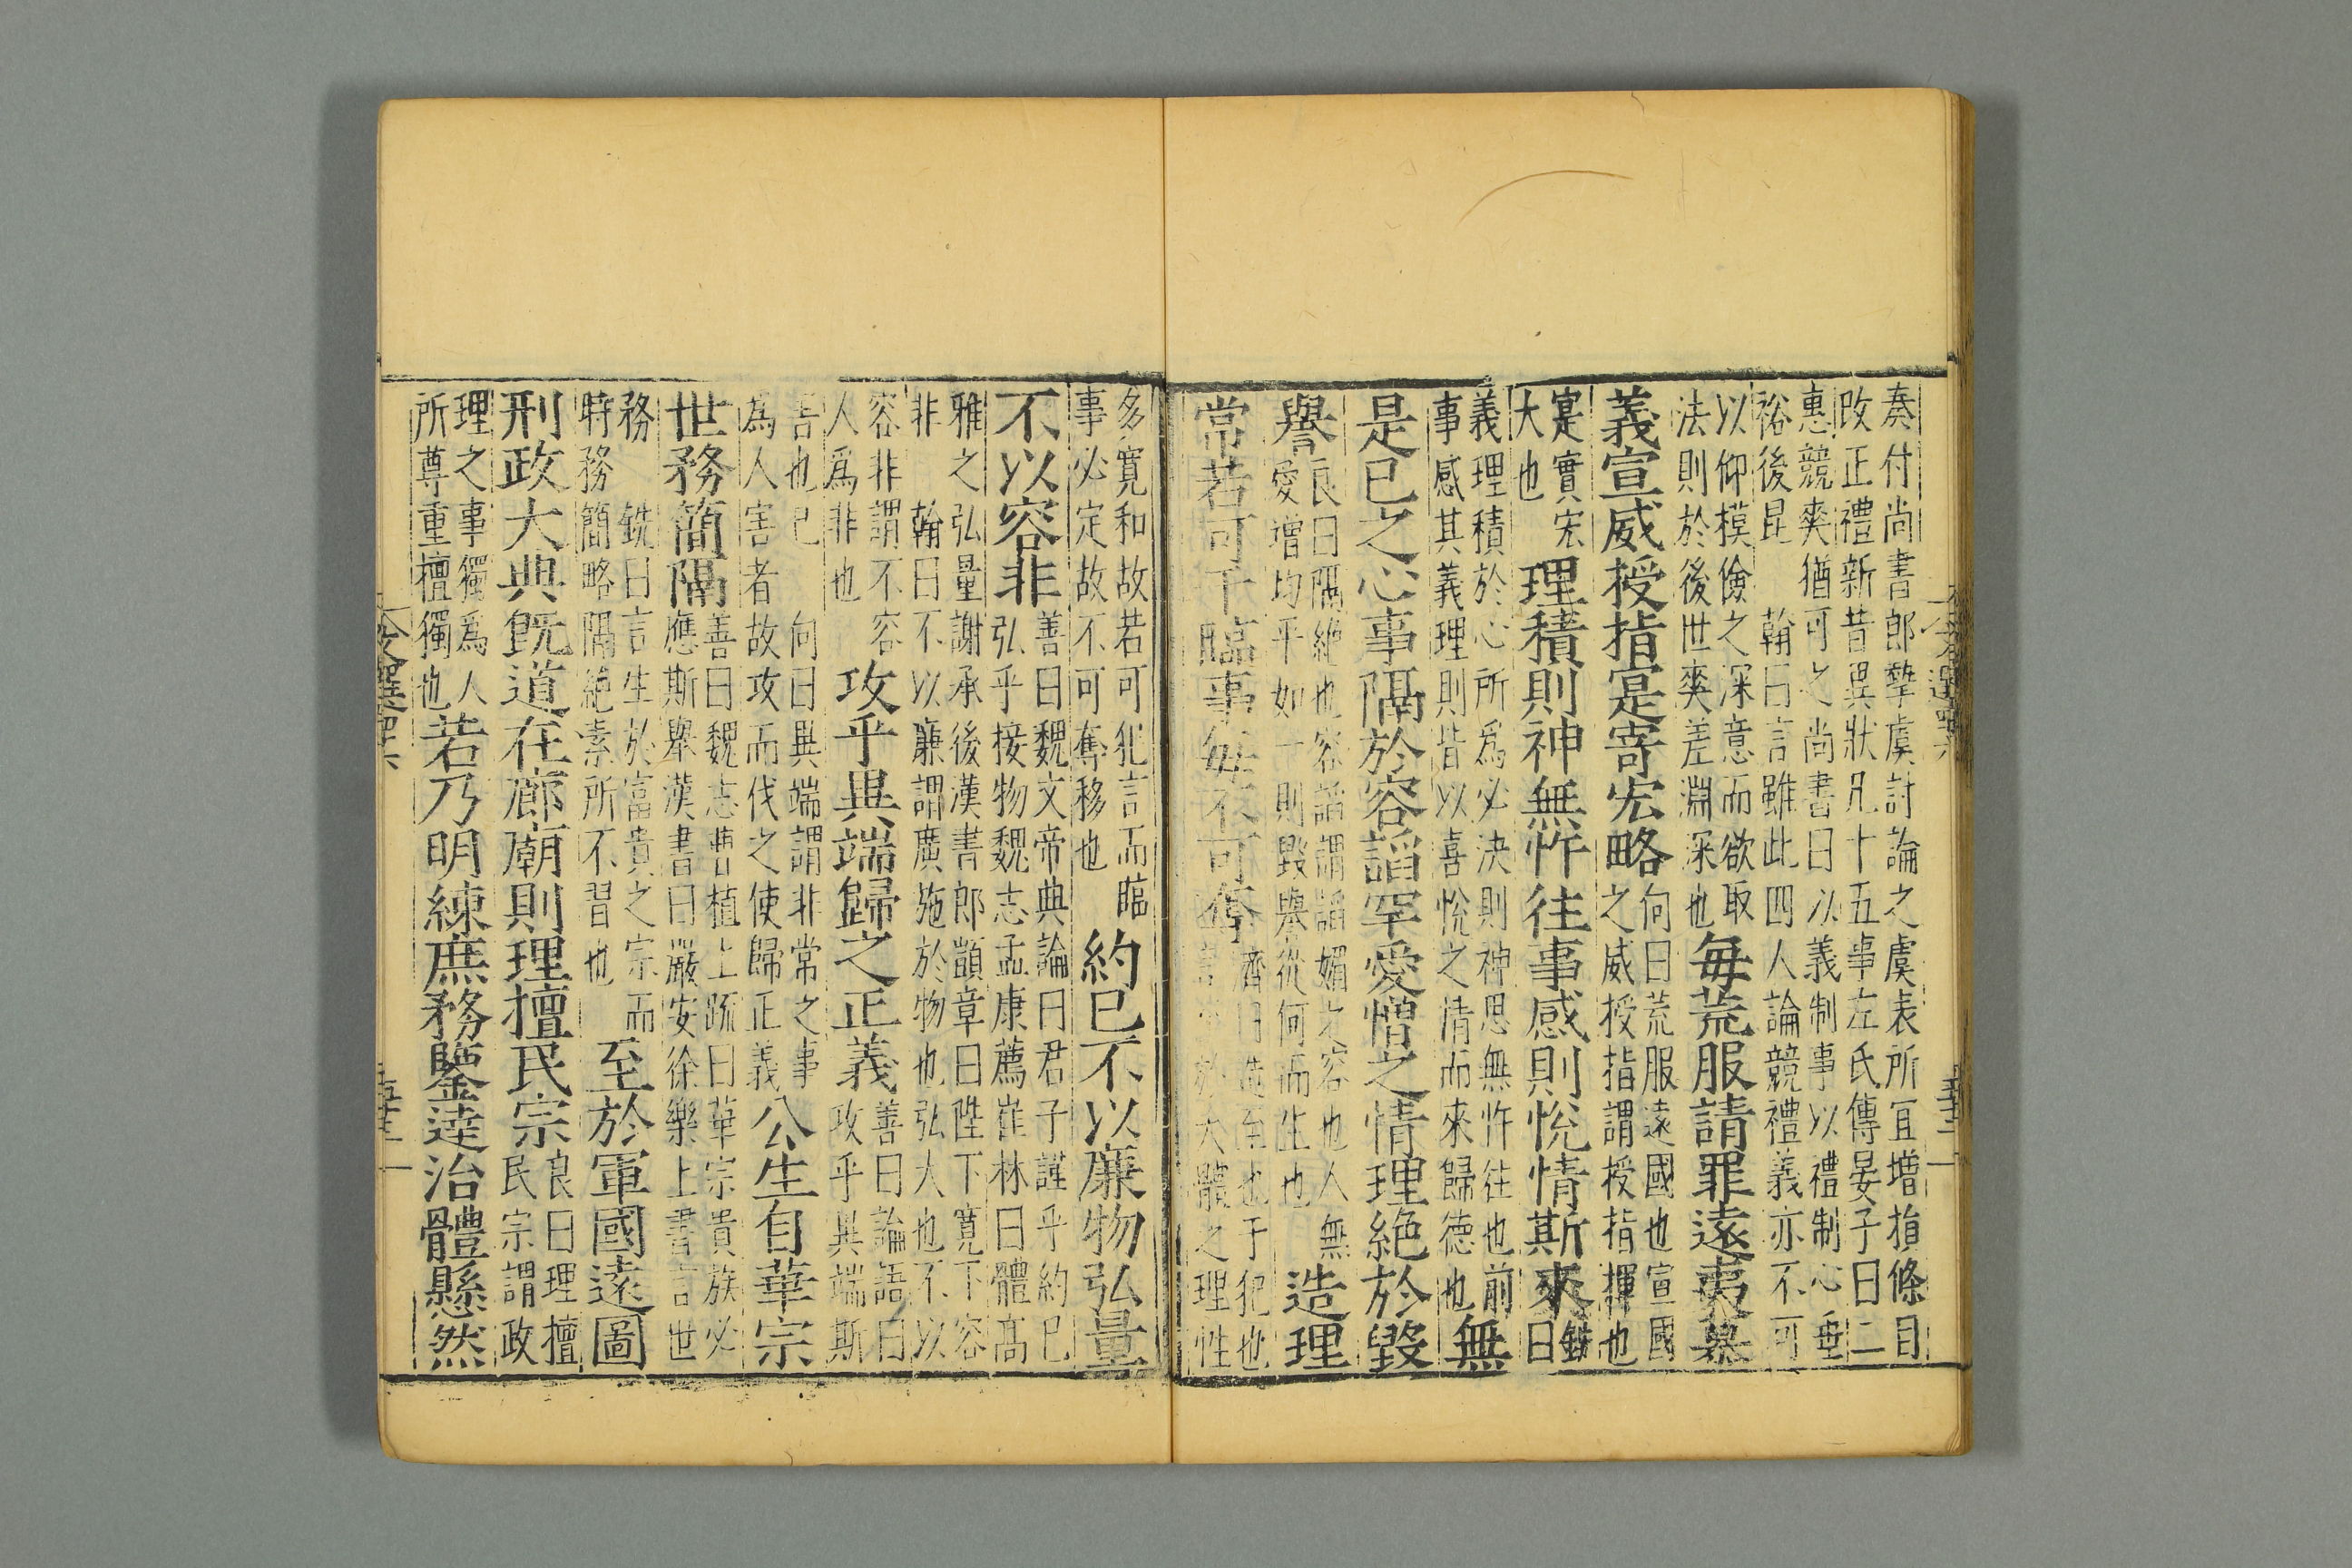 奏付尚書郎摯虞討論之虞表所宜增損條目
改正禮新昔異狀凡十五事左氏傳晏子曰二
惠競爽猶可之尚書曰以義制事以禮制心垂
裕後昆 翰曰言雖此四人論競禮義亦不可
以仰模儉之深意而欲取
法則於後世爽差淵深也
每荒服請罪遠夷慕
義宣威授指寔寄宏略
向曰荒服遠國也宣國
之威授指謂授指揮也
寔實宏
大也
理積則神無忤往事感則悅情斯來
銑曰
義理積於心所爲必決則神思無忤往也前
事感其義理則皆以喜悅之清而來歸德也
無
是已之心事隔於容諂罕愛憎之情理絶於毀
譽
良曰隔絶也容諂謂諂媚之容也人無
愛增均平如一則毀譽從何而生也
造理
常若可干臨事每不可奪
濟曰造至也于犯也
言 於大體之理性
多寬和故若可犯言而臨
事必定故不可奪移也
約已不以廉物弘量
不以容非
善曰魏文帝典論曰君子謹乎約已
弘乎接物魏志孟康薦崔林曰體高
雅之弘量謝承後漢書郎顗章曰陛下寬下容
非 翰曰不以廉謂廣施於物也弘大也不以
容非謂不容
人爲非也
攻乎異端歸之正義
善曰論語曰
攻乎異端斯
害也已 向曰異端謂非常之事
為人害者故攻而伐之使歸正義
公生自華宗
世務簡隔
善曰魏志曹植上疏曰華宗貴族必
應斯舉漢書曰嚴安徐樂上書言世
務 銑曰言生於富貴之宗而
時務簡略隔絶索所不習也
至於軍國遠圖
刑政大典旣道在廊廟則理擅民宗
良曰理擅
民宗謂政
理之事獨爲人
所尊重擅獨也
若乃明練庶務鑒達治體懸然